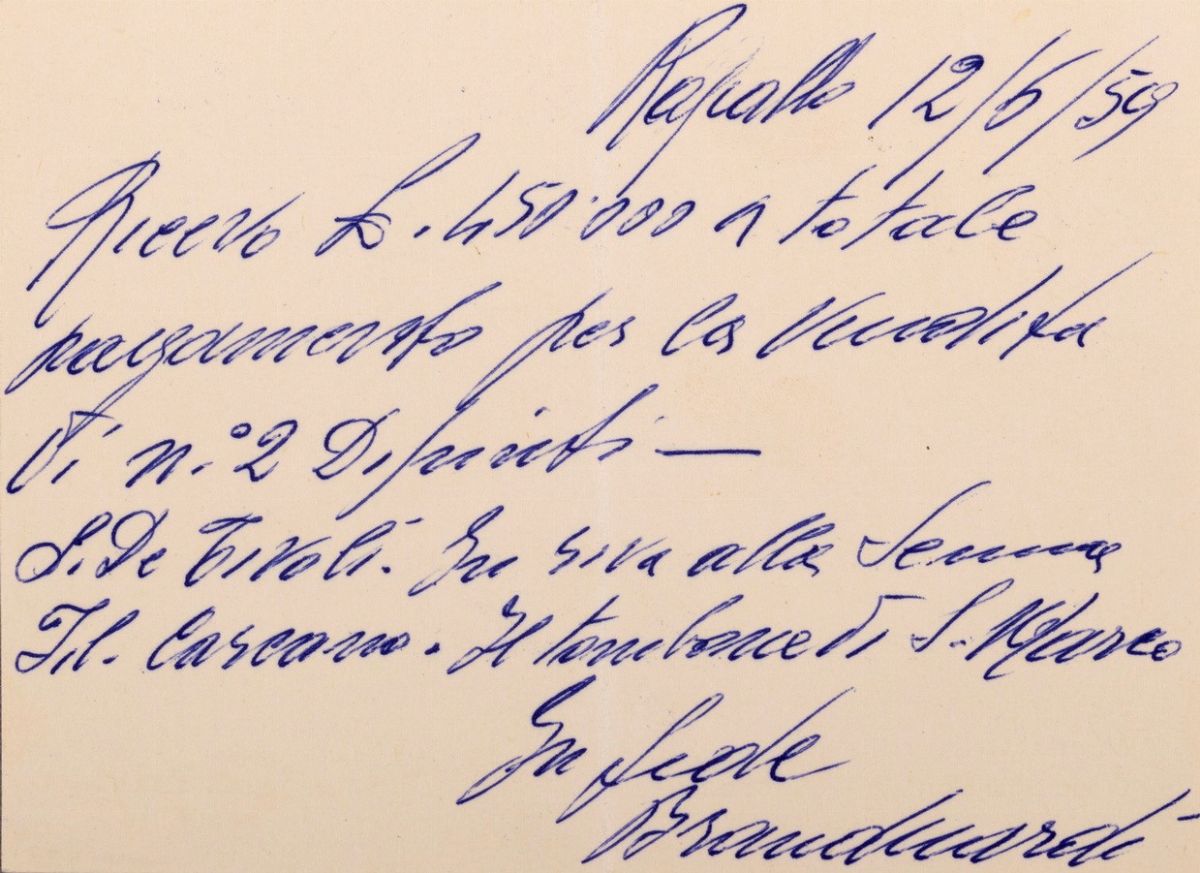 Rapallo 12/6/59
Ricevo L. 450.000 a totale
pagamento per la vendita
di n.° 2 Dipinti —
S. De Tivoli. In riva alla Senna
Fil. Carcano. Il tombone di S. Marco
In fede
Branduardi